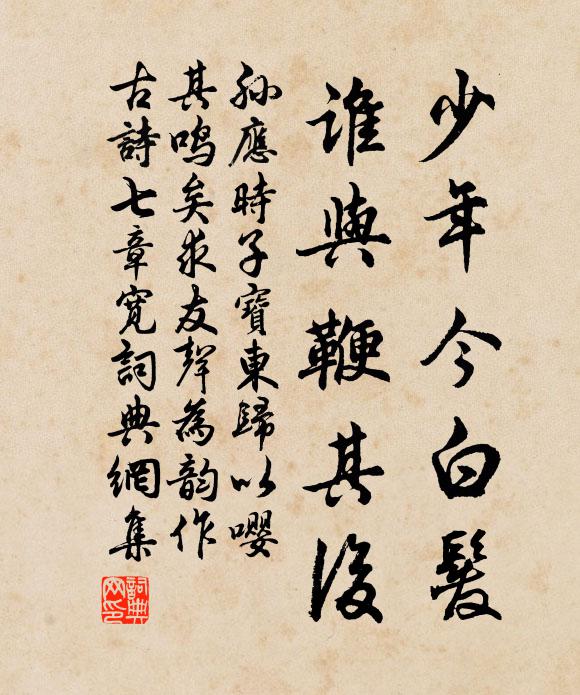 少年今白髮
誰與鞭其後
孫應時子寶東歸以嚶
其鳴矣求友聲為韵作
古詩七章寬詞典網集
詞典網印